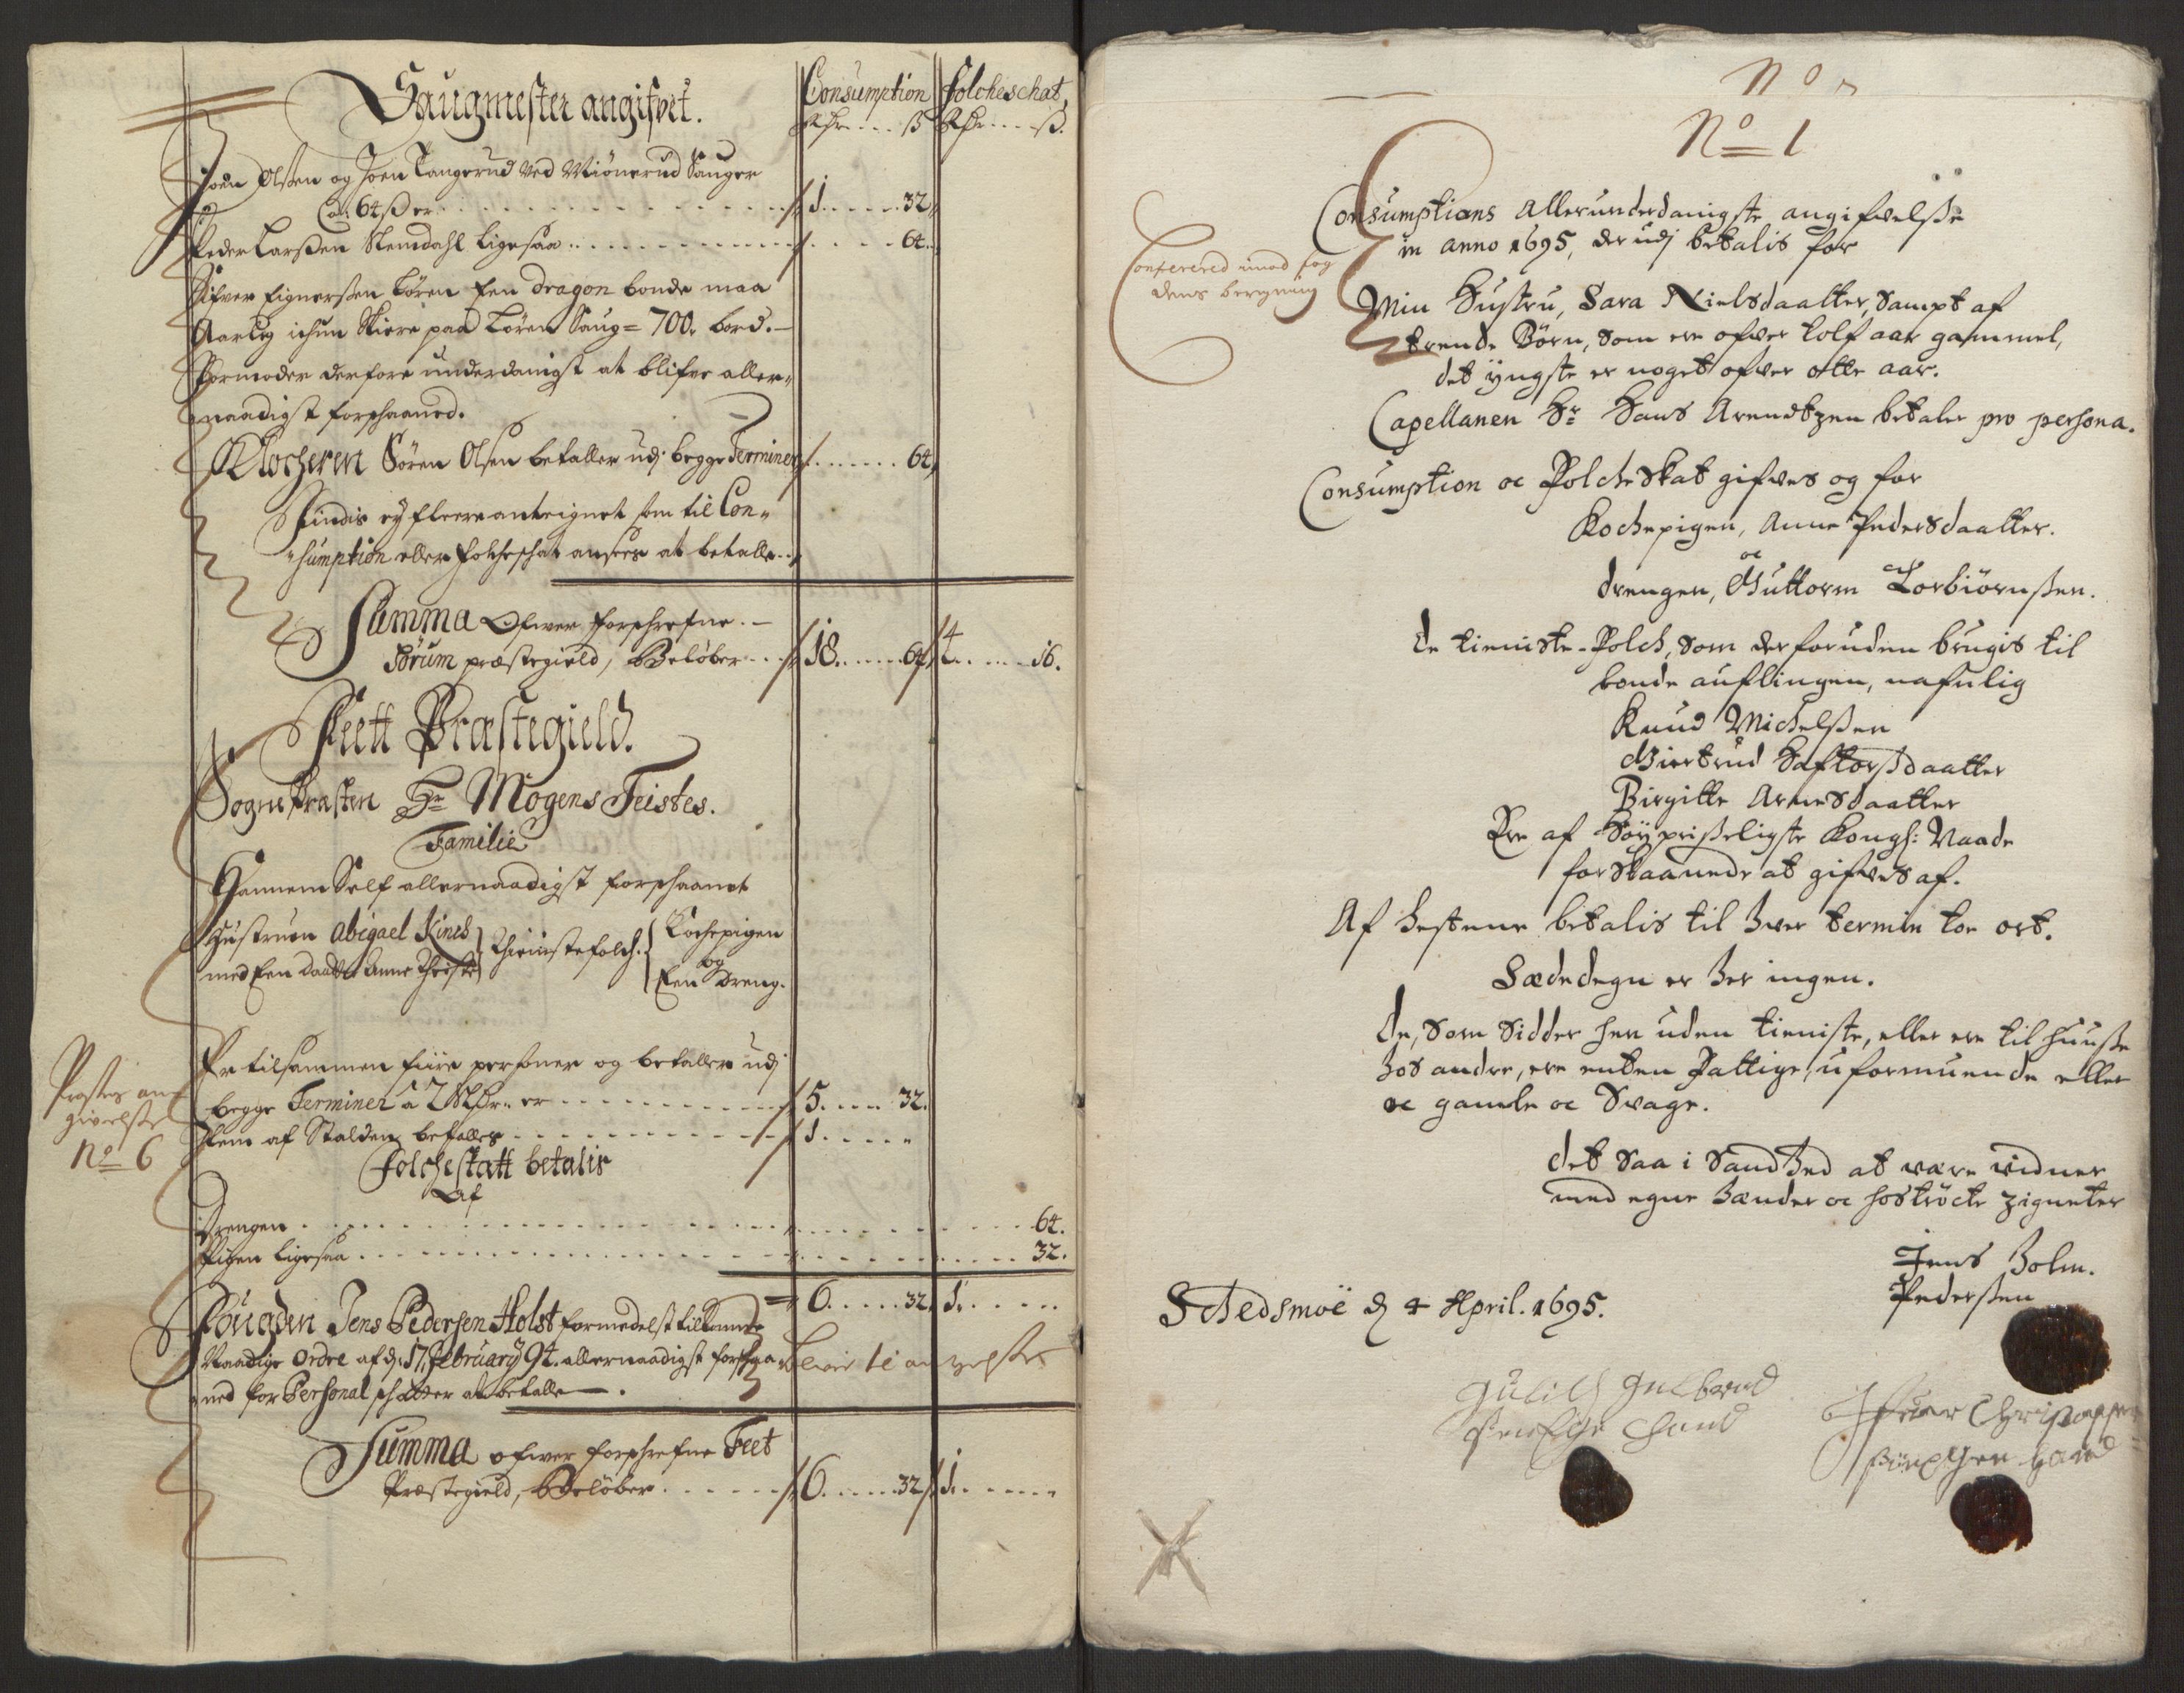 Saugmester angifvet.
Consumption Folcheschat
Rdr . . . ß Rdr . . . ß.
Joen Olßen og Joen Tangerud ved Miönerud Sauger
a 64 ß er . . . 1 . . . 32
Peder Larßen Nemdahl ligesaa . . . 64.
Sifver Eignerßen Lören Een dragon bonde maa
Aarlig ichun Skiere paa Lören Saug = 700 bord. –
Formoder derfore underdanigst at blifve aller„
naadigst forschaaned.
Klocheren Sören Olsen betaller udj begge Terminer . . . 64
Findis ey fleere anteignet som til Con„
„sumption eller folcheschat ansees at betalle . .
Summa Ofwer forschrefne. –
Sörum præstegield, Belöber . . . 18 . . . 64 4 . . . 16.
Feett Præstegield.
Sogne Præsten Hr Mogens Feistes.
Familie
Hannem Self allernaadigst forschaanet
Hustruen Abigael Kinch
med Een Daatter Anne
Thienistefolch.
Kochepigen
og
Een Dreng.
Er tilsammen fiire personer og betaller udj
begge Terminer a 2 Rdr. er . . . 5. . . . 32.
Præstens an
givelse
No 6
Item af Stalden betalles . . . 1 . . .
Folcheskatt betalis
Af
Drengen . . . 64.
Pigen ligesaa . . . 32.
6 . . . 32. 1. . . .
Fougden Jens Pedersen Holst formedelst
Naadige Ordre af d. 17 February 94. allernaadigst forschaa„
ned for Personal schatter at betalle.
Summa ofwer forschrefne Feet
Præstegield, Belöber . . . 6 . . . 32 1. . . .
No
No 1
Consumptions Allerunderdanigste angifvelße
in anno 1695, der udj betalis for
Conferered imod fog
dens beregning
Min Hustru, Sara Nielsdaatter, Sampt af
trende Börn, som ere ofver tolf aar gammel,
det yngste er noget ofver otte aar.
Capellanen Hr Hans Arendtzen betaler pro persona.
Consumption oc Folche Skat gifves og for
Kochepigen, Anne Pedersdaatter.
oc
drengen, Guttorm Torbiörnßen.
De tieniste-Folch, som der foruden brugis til
bonde auflingen, nafnlig
Knud Michelßen
Giertrud Haftorßdaatter
Birgitte Arnesdaatter
Ere af Höypriseligste Kongl: Naade
forskaanede at gifves af.
Af hestene betalis til hver termin toe ort.
Sædedegn er her ingen.
De, som sidder her uden tieniste, eller ere til huuse
hos andre, ere enten Fattige, uformuende eller
oc gamle oc Svage.
Det saa i Sandhed at være vidner
med egne hænder oc hoströcte zigneter
Jens Holm.
Pederßen
Schedsmoe d 4 April. 1695.